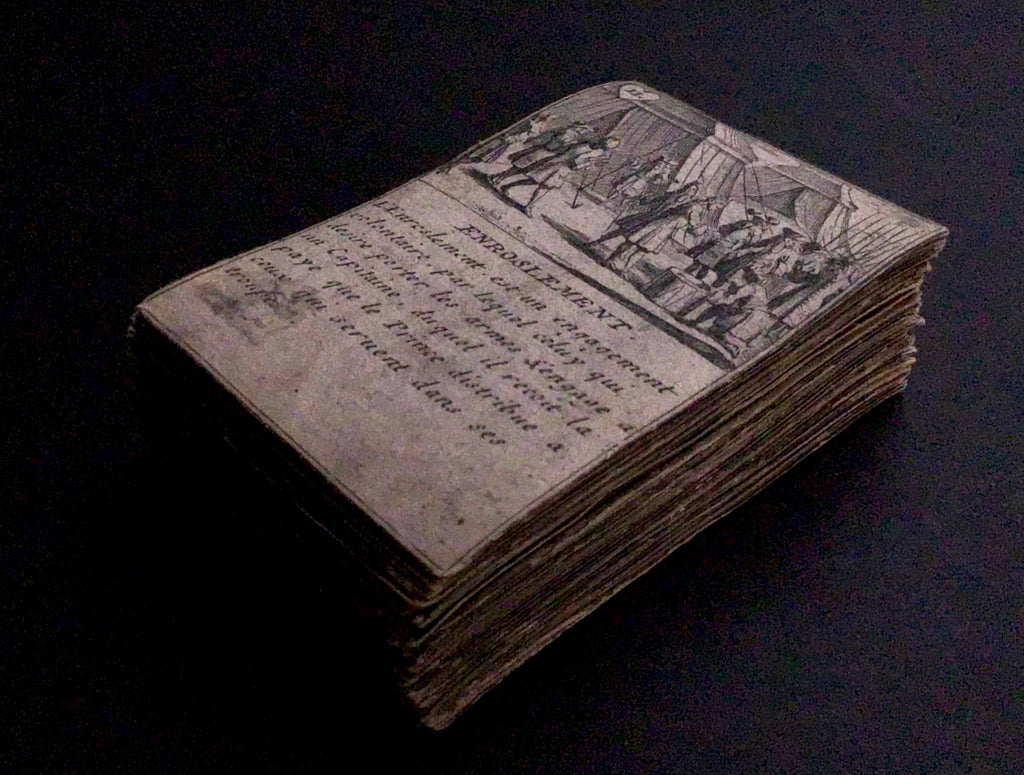 ENROSLEMENT
L'Enroslement est un engagement
volontaire, par lequel celuy qui
desire porter les armes s'engage a
un Capitaine, duquel il reçoit la
paye que le Prince distribue a
ceux qui seruent dans ses
troupes